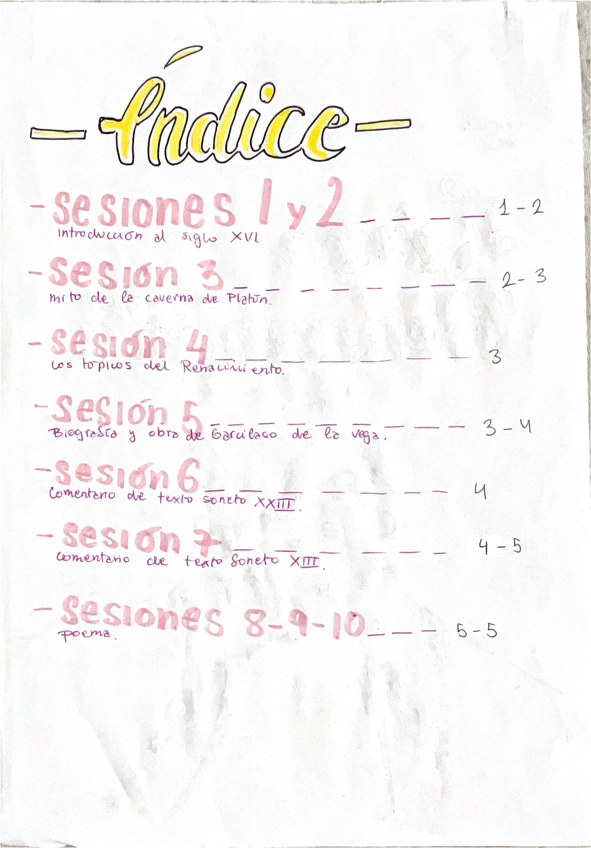 — Índice —
- Sesiones 1 y 2 _ _ _ _ 1-2
introducción al siglo XVI
- Sesión 3 _ _ _ _ _ _ _ 2-3
mito de la caverna de Platón.
- Sesión 4 _ _ _ _ _ _ _ 3
Los topicos del Renacimiento.
- Sesión 5 _ _ _ _ _ _ _ 3-4
Biografía y obra de Garcilaco de la Vega.
- Sesión 6 _ _ _ _ _ _ _ 4
Comentario de texto Soneto XXIII.
- Sesión 7 _ _ _ _ _ _ 4-5
comentario de texto Soneto XIII.
- Sesiones 8-9-10 _ _ _ 5-5
poema.